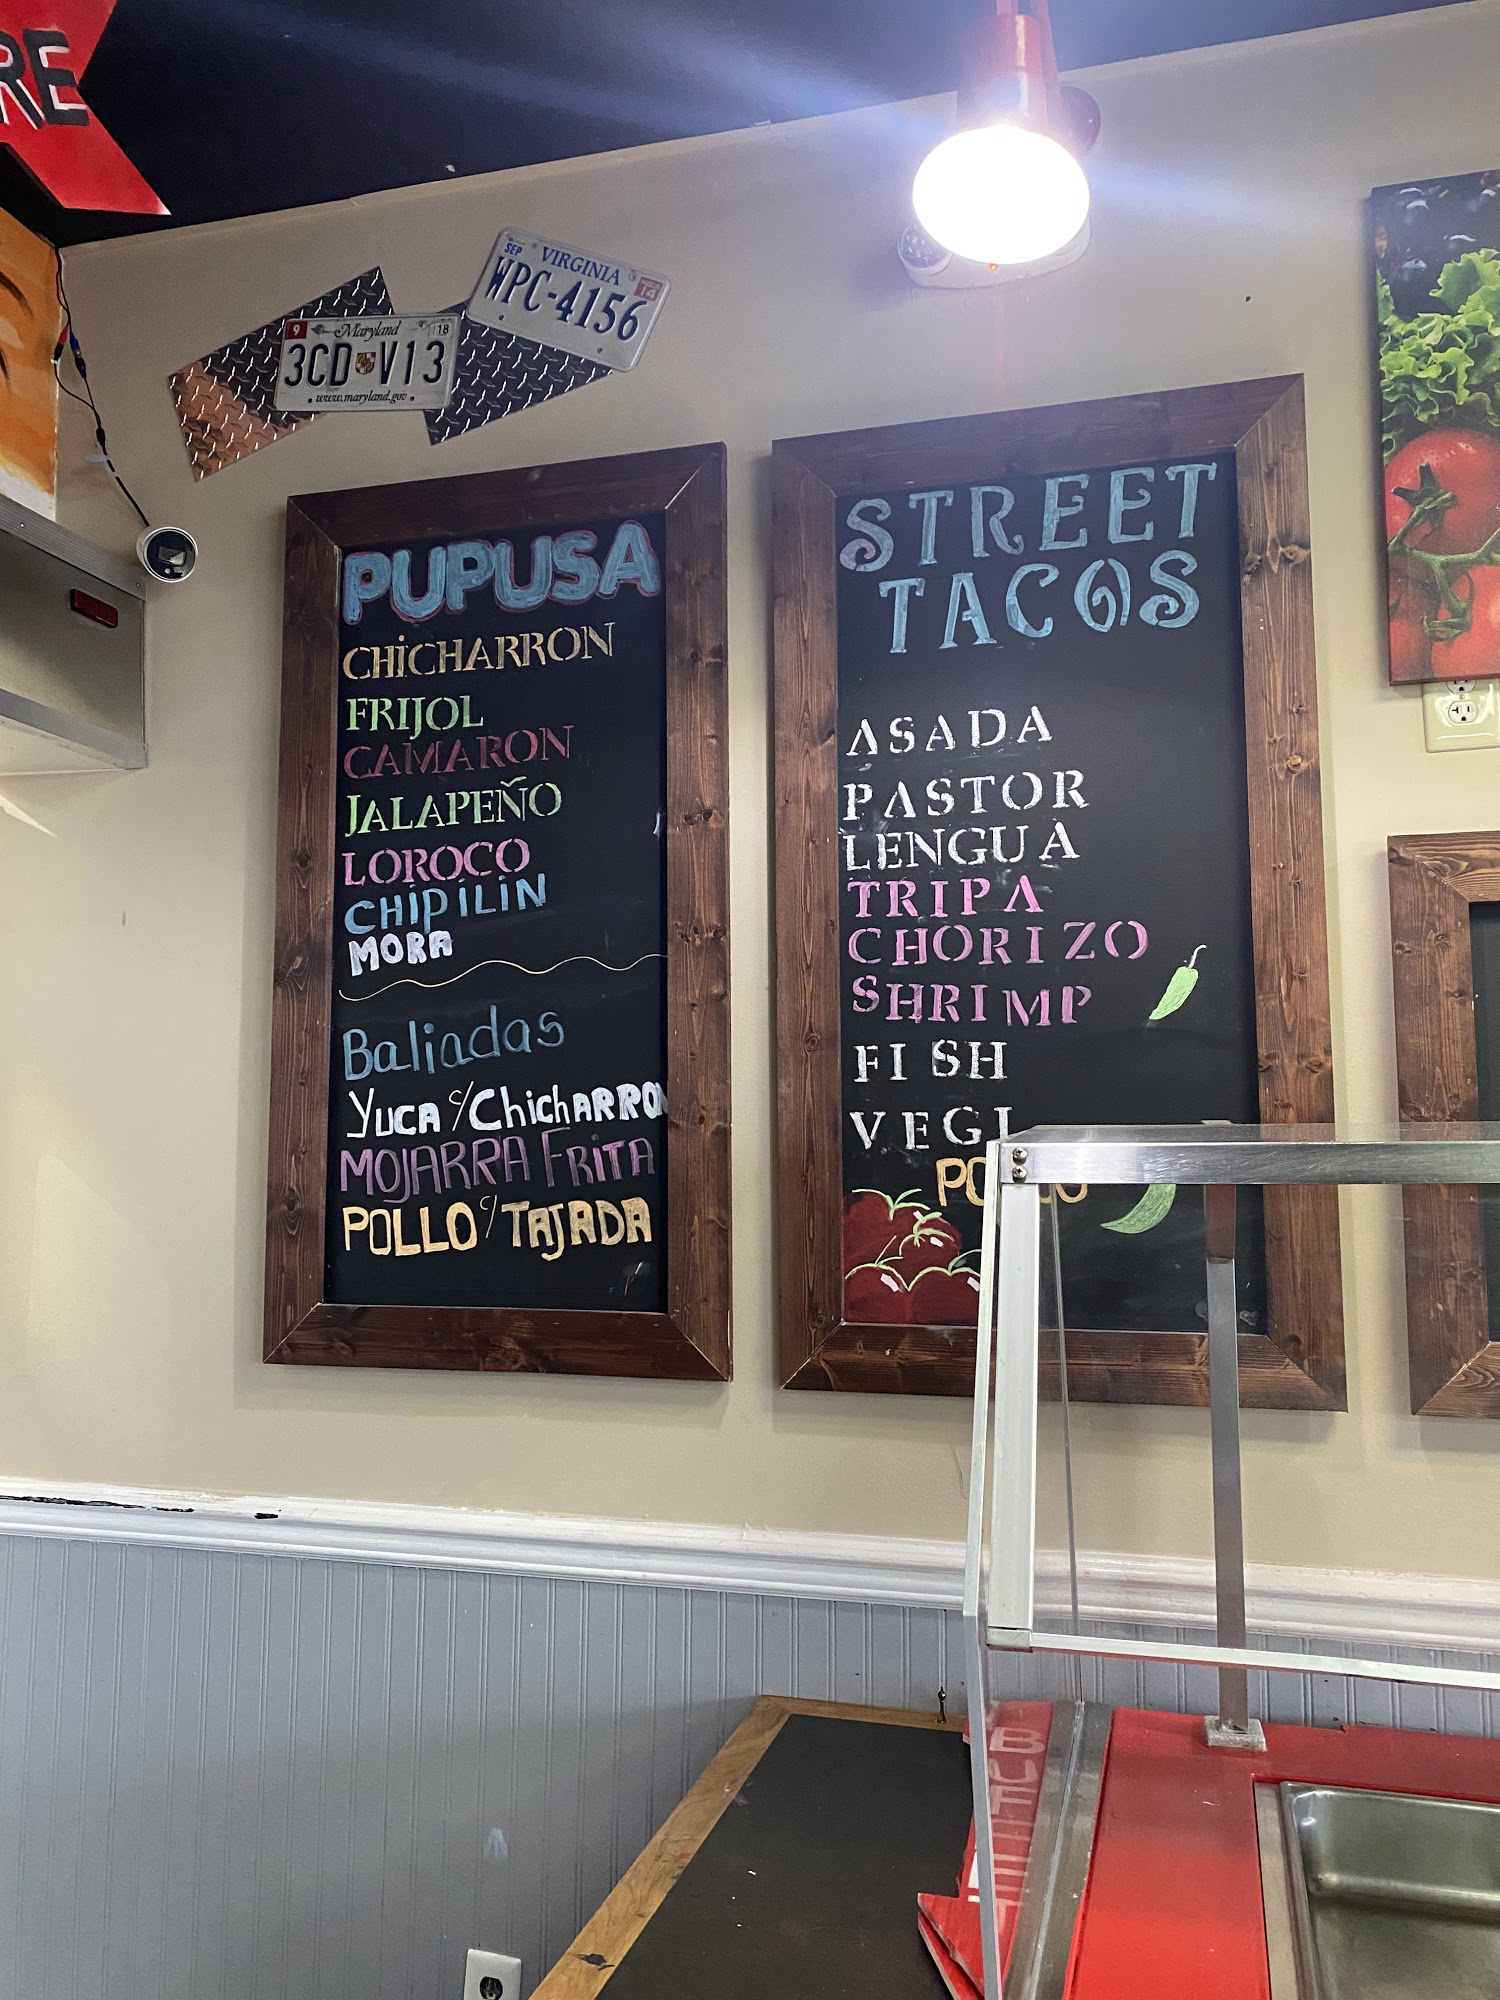 RE
SEP VIRGINIA 14
WPC-4156
9 Maryland 18
3CD V13
www.maryland.gov
PUPUSA
CHiCHARRON
FRIJOL
CAMARON
JALAPEÑO
LOROCO
CHIPILIN
MORA
Baliadas
YUCA c/ChichARRON
MOJARRA FRITA
POLLO c/TAJADA
STREET
TACOS
ASADA
PASTOR
LENGUA
TRIPA
CHORIZO
SHRIMP
FISH
VEGI